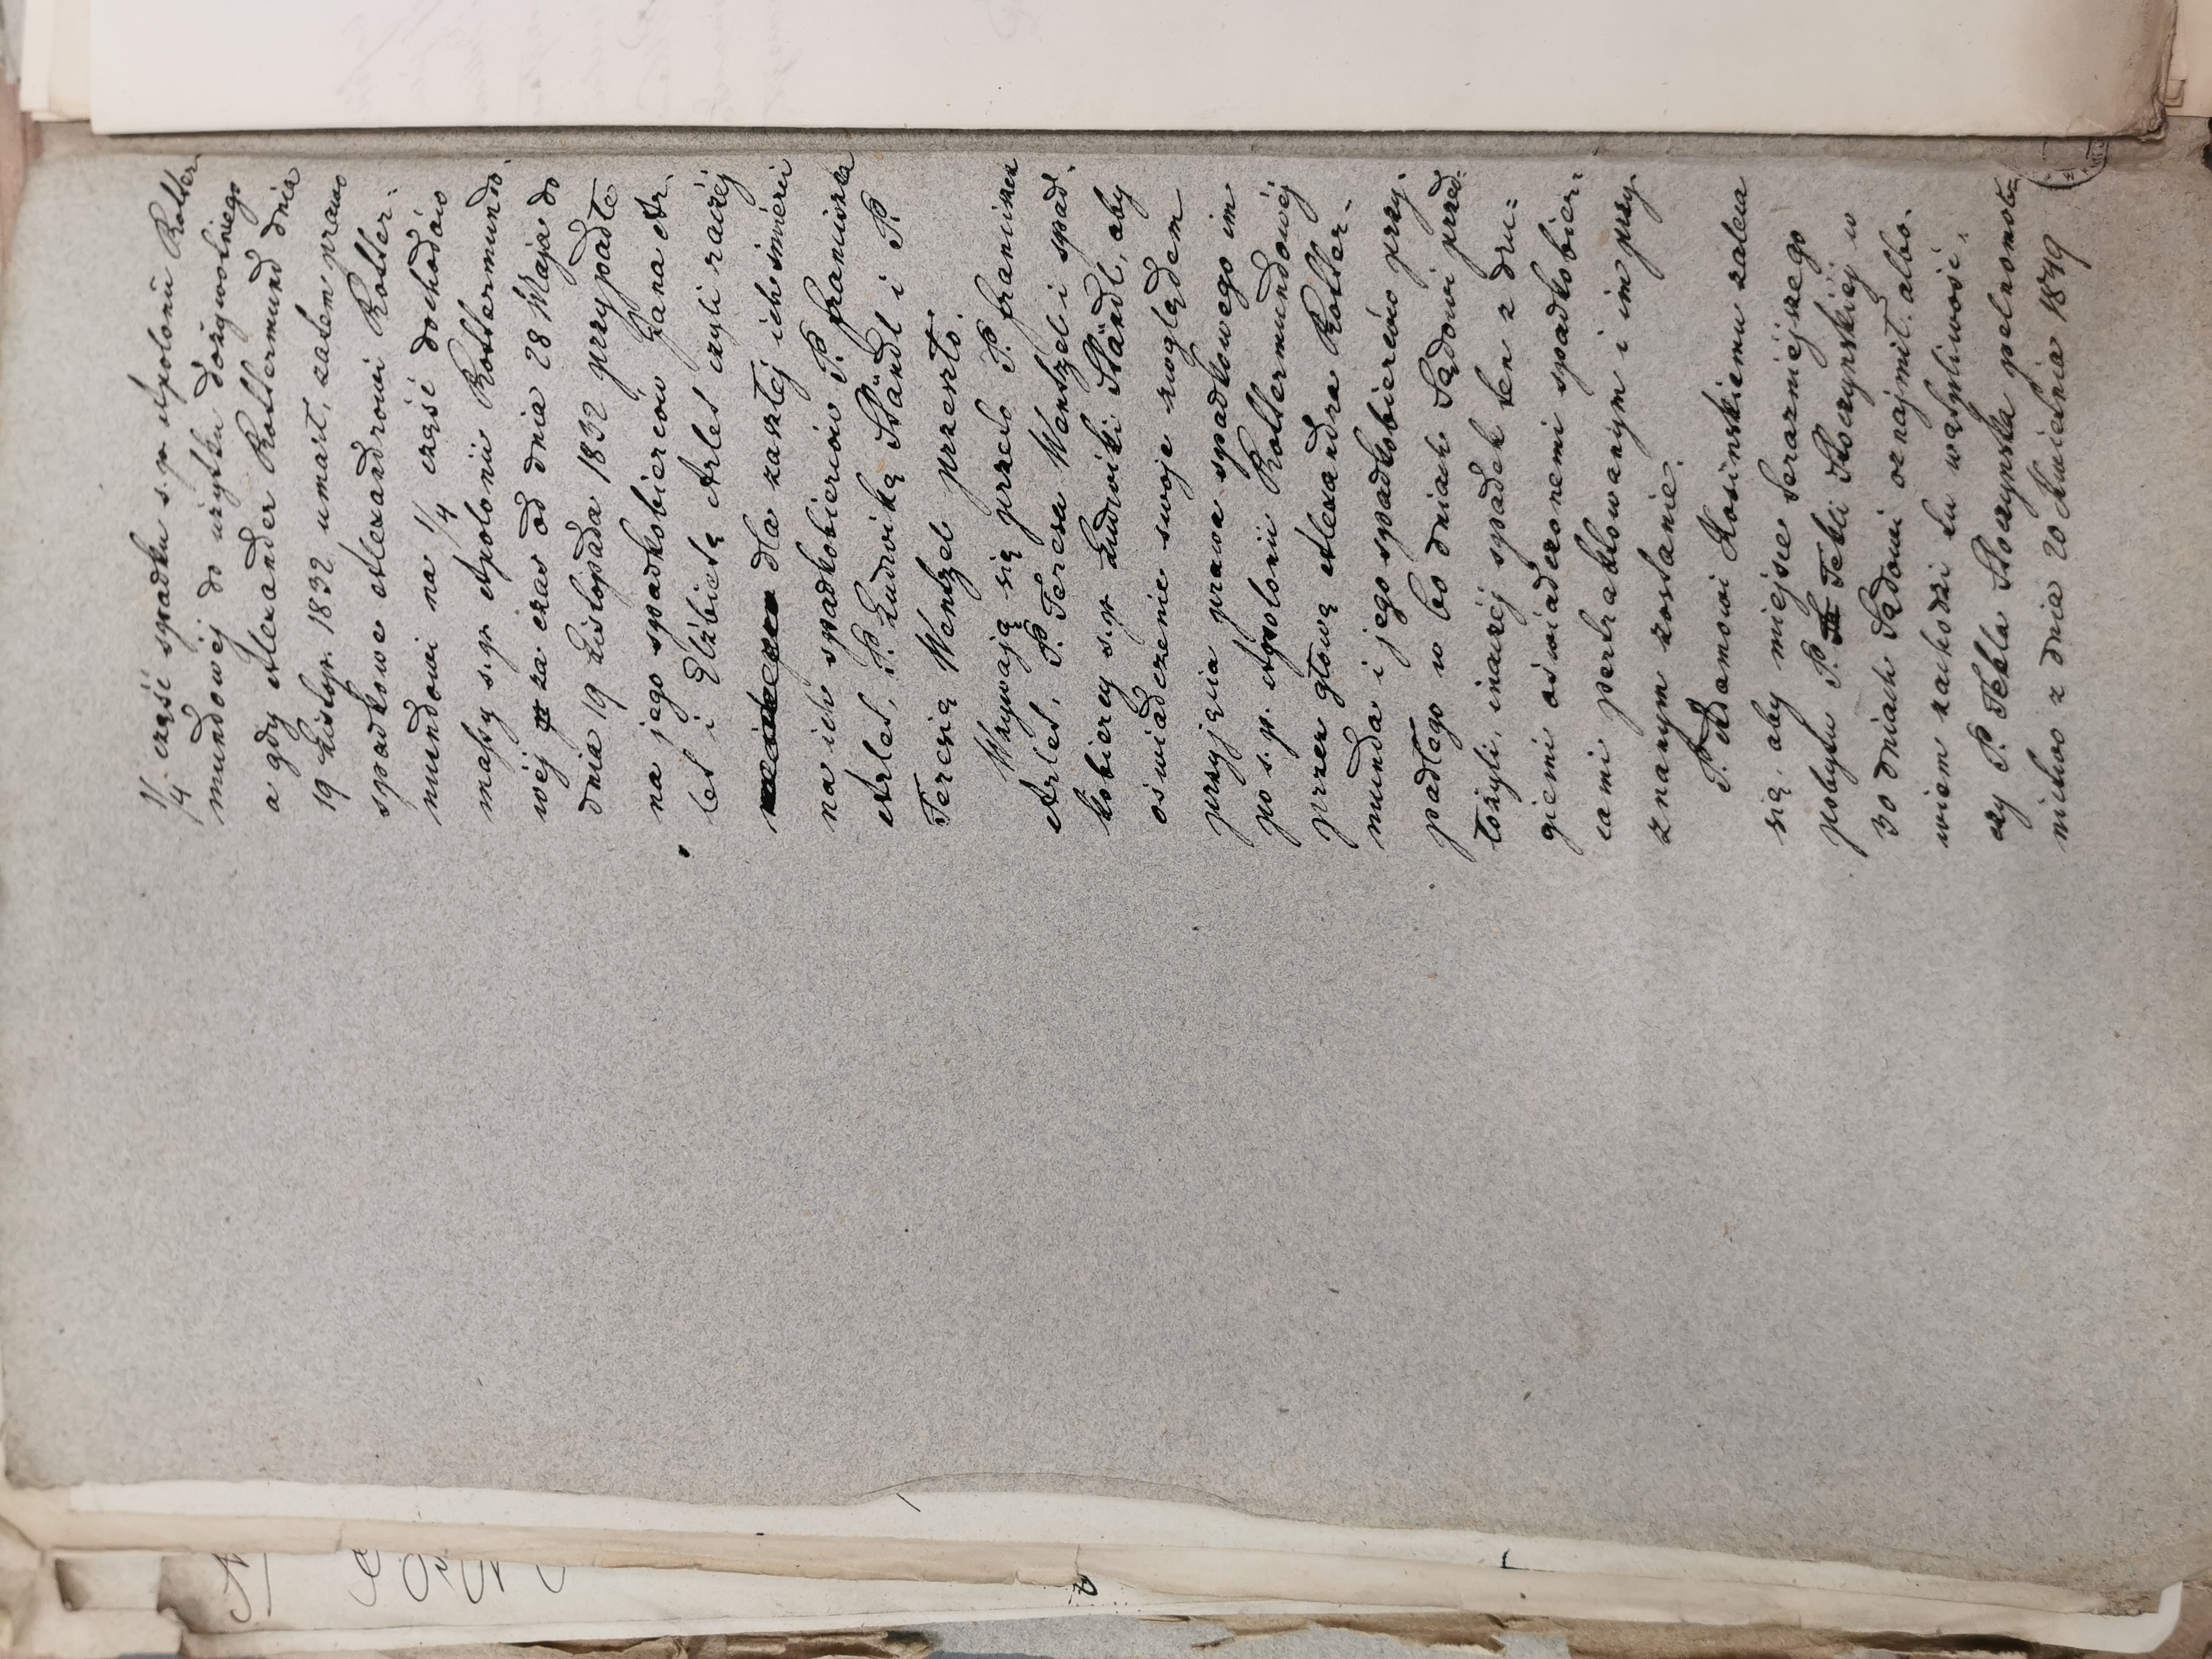 1/4 część spadku s.p. Apolonii Rotter-
mundowej do użytku dożywotniego
a gdy Alexander Rottermund dnia
19 Listop. 1832 umarł, zatem prawo
spadkowe Alexandrowi Rotter=
mundowi na 1/4 część dochodów
massy s.p. Apolonii Rottermundo-
wéj za czas od dnia 28 Maja do
dnia 19 Listopada 1832 przypadłe
na jego spadkobierców Jana Ar-
let i Elżbietę Arlet czyli raczéj
dla zaszłéj ich śmierci
na ich spadkobierców P. Franciszka
Arlet, P. Ludwikę Ständl i P.
Teresię Wentzel przeszło.
Wzywają się przeto P. Franciszek
Arlet, P. Teresa Wentzel i spad-
kobiercy s.p. Ludwiki Ständl, aby
oświadczenie swoje względem
przyjęcia prawa spadkowego im
po s.p. Apolonii Rottermundowéj
przez głowę Alexandra Rotter-
munda i jego spadkobierców przy-
padłego w 60 dniach Sądowi przed-
łożyli, inaczéj spadek ten z dru=
giemi oświadczonemi spadkobier=
cami pertraktowanym i im przy-
znanym zostanie.
P. Adamowi Kosinskiemu zaleca
się, aby miejsce terazniejszego
pobytu P. Tekli Skoczynskiéj w
30 dniach Sądowi oznajmił, albo-
wiem zachodzi tu wątpliwość,
czy P. Tekla Skoczynska pełnomoc=
nictwo z dnia 20 Kwietnia 1849